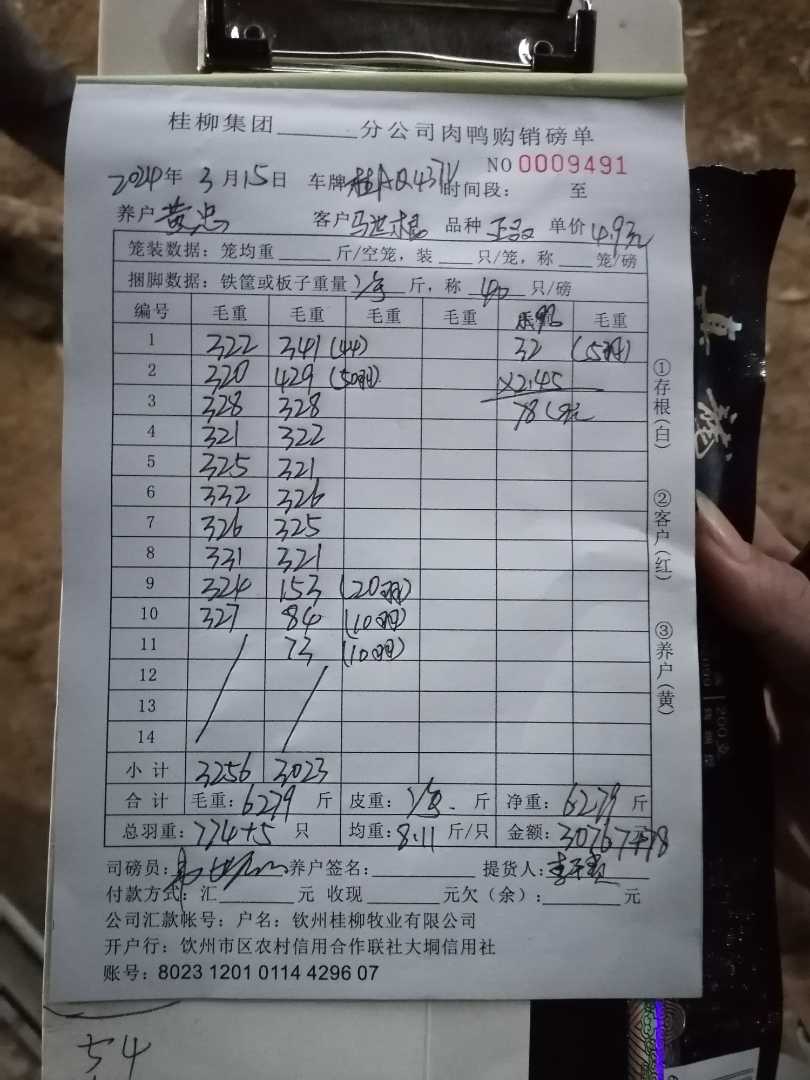 桂柳集团______分公司肉鸭购销磅单
NO 0009491
2024年 3月15日 车牌 时间段: 至
养户 黄忠 客户 马世根 品种 单价 4.9元
笼装数据: 笼均重____斤/空笼, 装___只/笼, 称___笼/磅
捆脚数据: 铁筐或板子重量 斤, 称 40 只/磅
编号 毛重 毛重 毛重 毛重 毛重
1 322 341 (44) 32 (5羽)
2 320 429 (50羽) ×2.45
3 328 328 78
4 321 322
5 325 321
6 332 326
7 326 325
8 331 321
9 324 153 (20羽)
10 327 84 (10羽)
11 73 (10羽)
12
13
14
小计 3256 3023
合计 毛重: 6279 斤 皮重: 斤 净重: 6279 斤
总羽重: 774+5 只 均重: 8.11 斤/只 金额: 30767+78
司磅员: 养户签名:__________ 提货人:
付款方式: 汇_______元 收现_______元欠(余):_______元
公司汇款帐号: 户名: 钦州桂柳牧业有限公司
开户行: 钦州市区农村信用合作联社大垌信用社
账号: 8023 1201 0114 4296 07
①存根(白)
②客户(红)
③养户(黄)
54